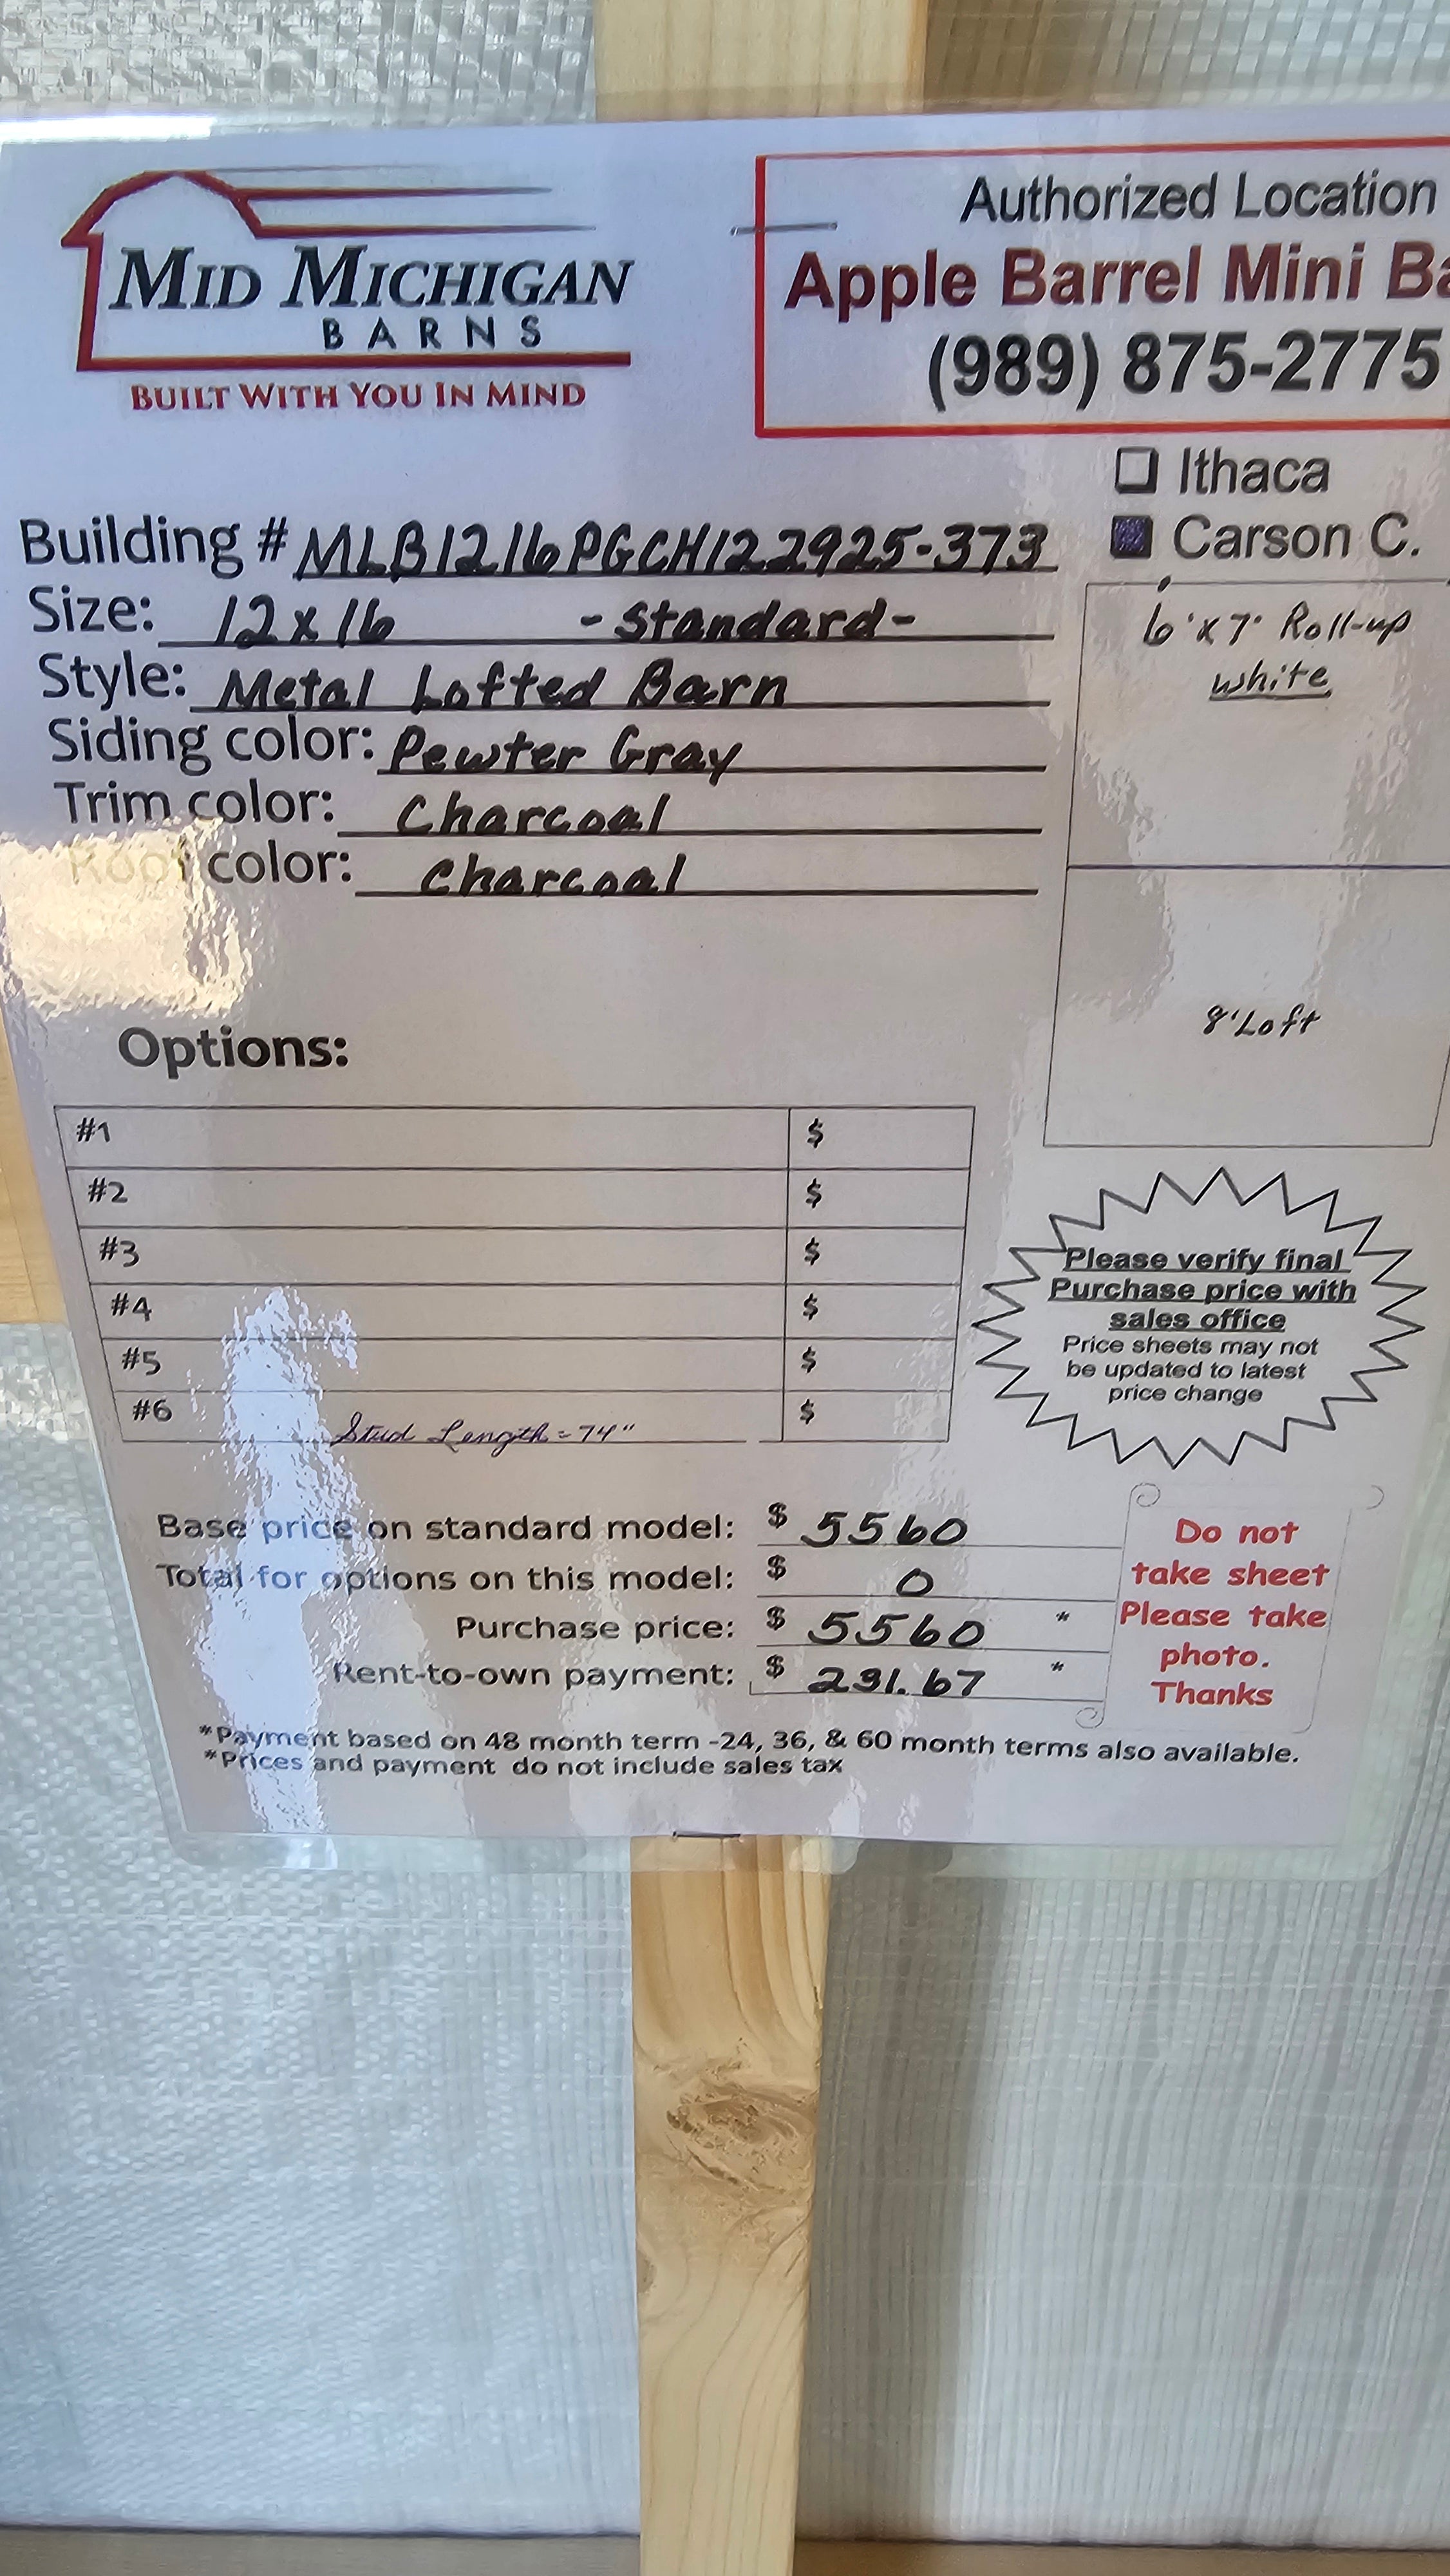 MID MICHIGAN
BARNS
BUILT WITH YOU IN MIND
Authorized Location
Apple Barrel Mini Ba
(989) 875-2775
Ithaca
Carson C.
Building # MLB1216PGCH122925-373
Size: 12x16 -Standard-
Style: Metal Lofted Barn
Siding color: Pewter Gray
Trim color: Charcoal
Roof color: Charcoal
6'x7' Roll-up
white
8' Loft
Options:
#1 $
#2 $
#3 $
#4 $
#5 $
#6 $
Stud Length = 74"
Please verify final
Purchase price with
sales office
Price sheets may not
be updated to latest
price change
Base price on standard model: $ 5560
Total for options on this model: $ 0
Purchase price: $ 5560 *
Rent-to-own payment: $ 231.67 *
Do not
take sheet
Please take
photo.
Thanks
*Payment based on 48 month term -24, 36, & 60 month terms also available.
*Prices and payment do not include sales tax